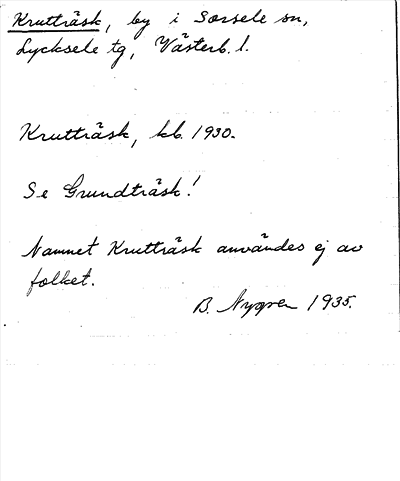 Krutträsk, by i Sorsele sn,
Lycksele tg, Västerb. l.
Krutträsk, kb. 1930.
Se Grundträsk!
Namnet Krutträsk användes ej av
folket.
B. Nygren 1935.